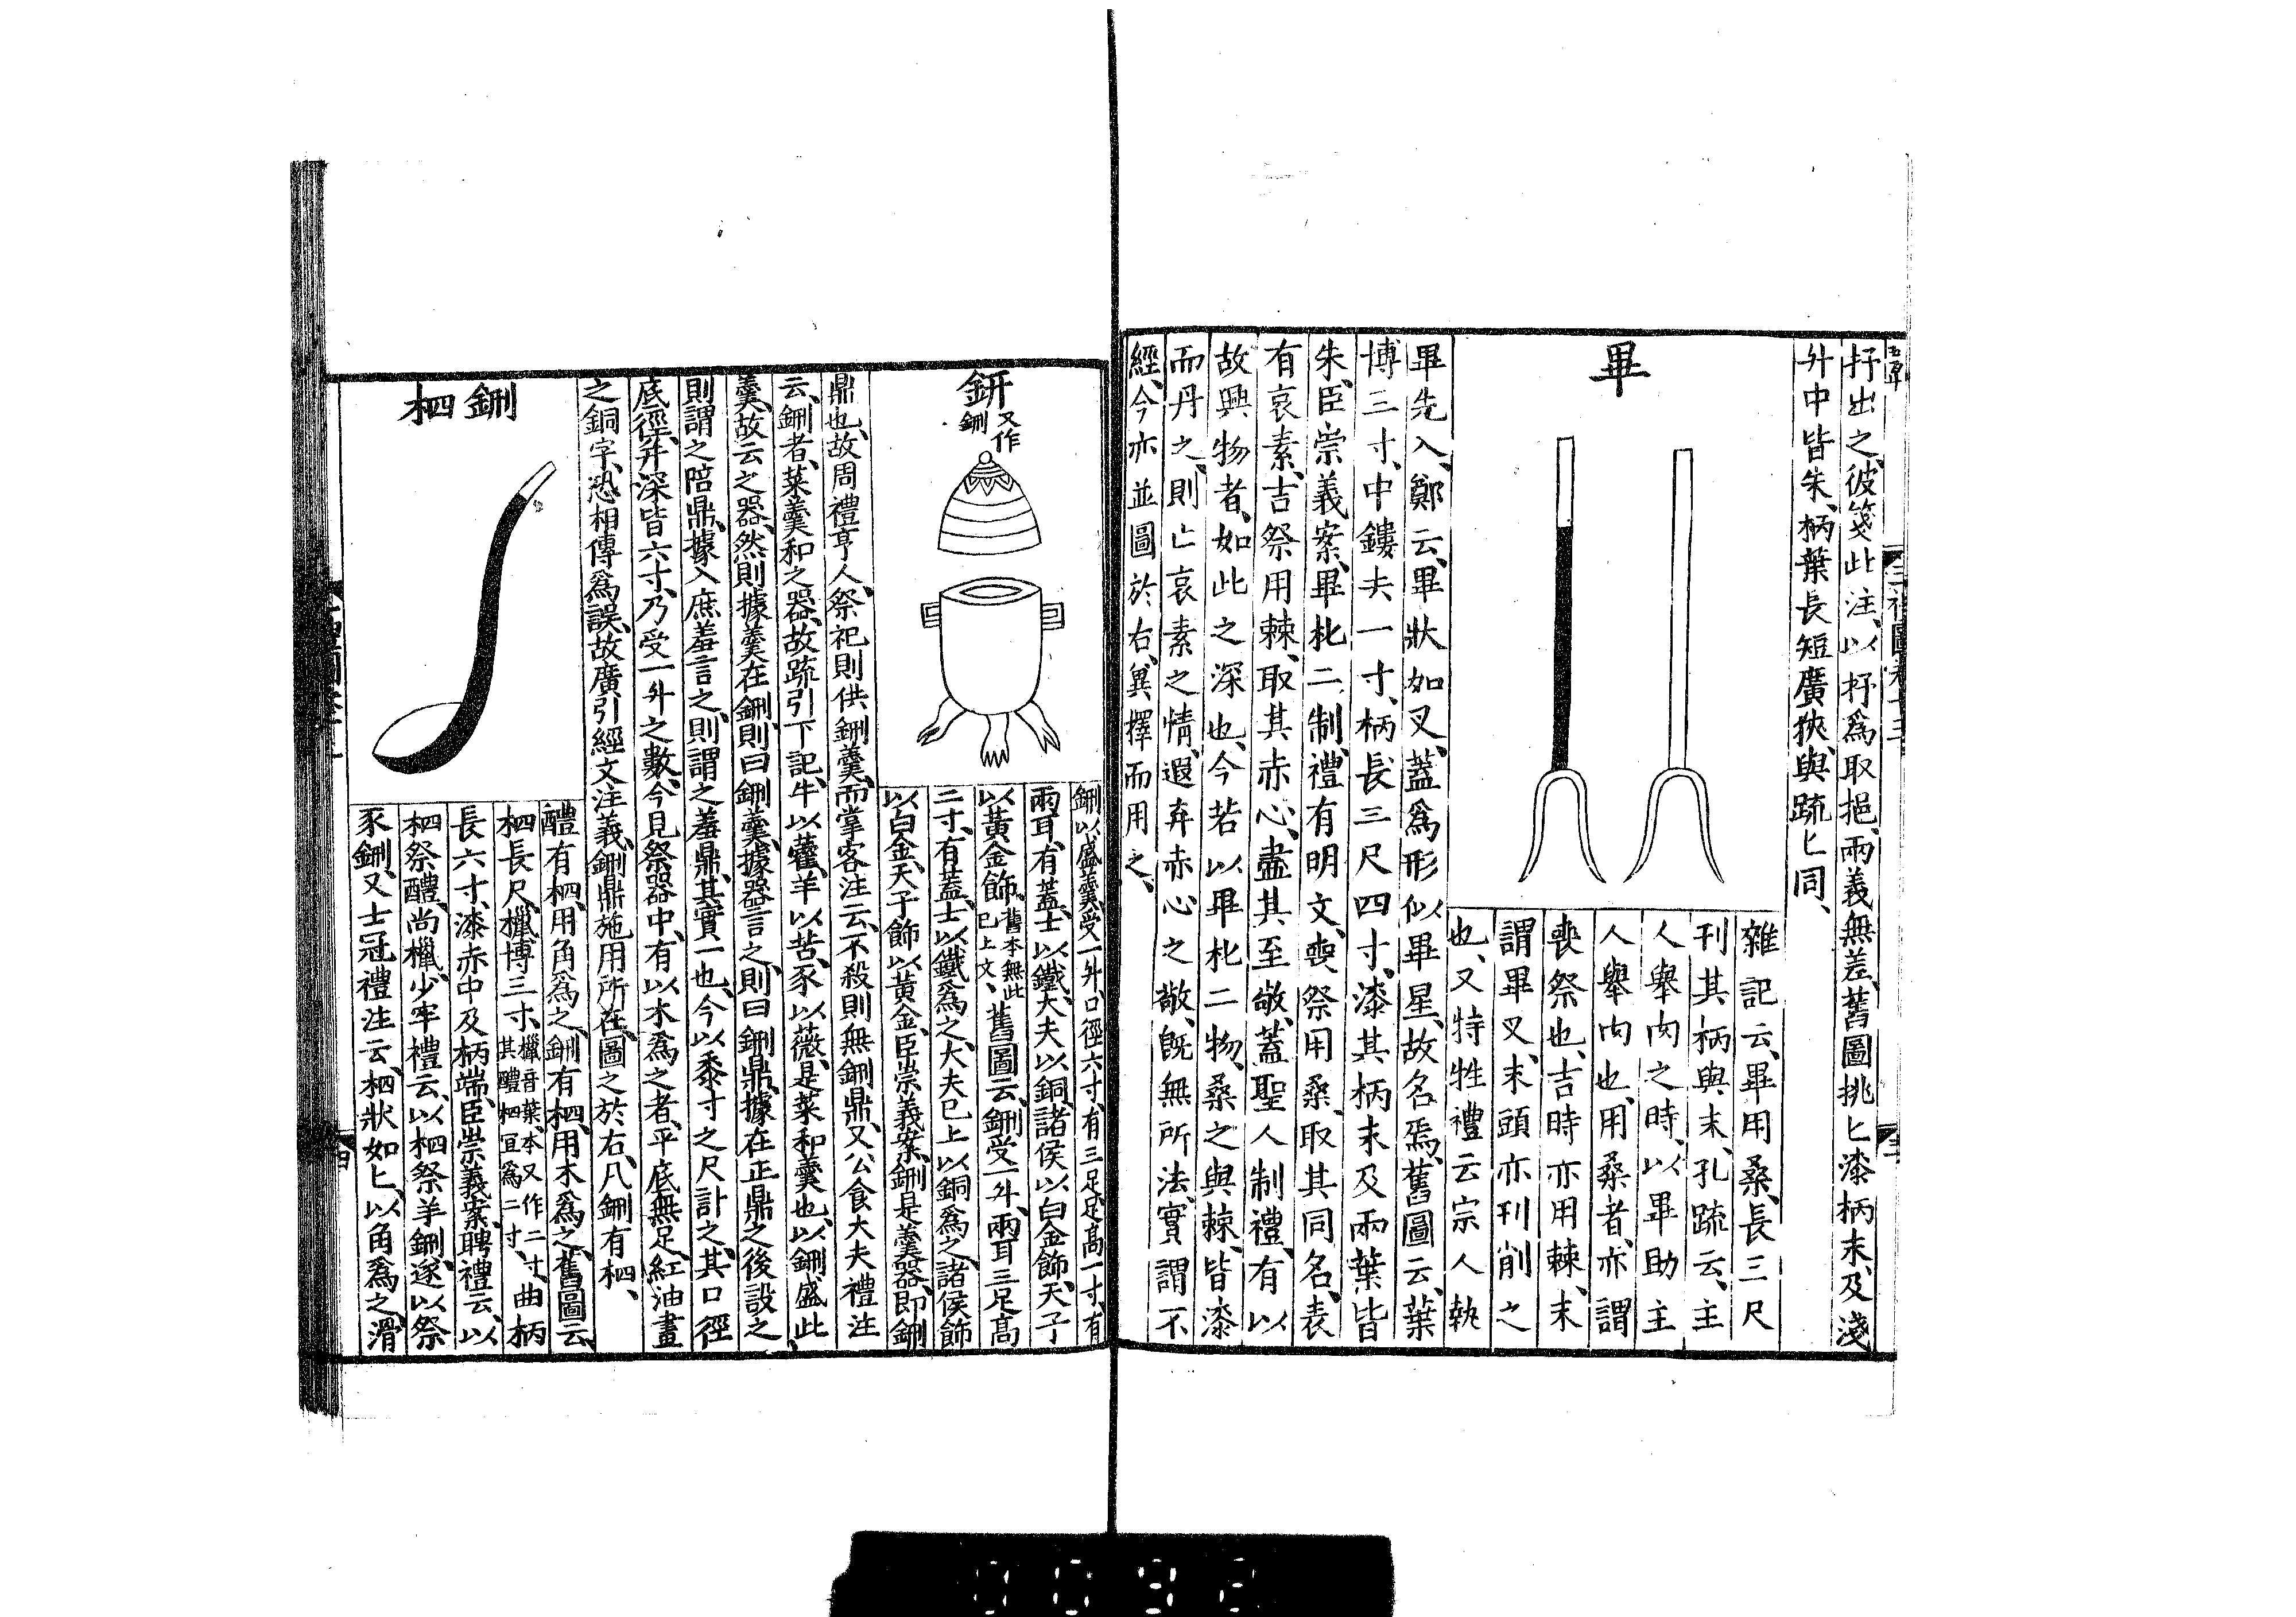 抒出之彼箋此注以抒爲取挹兩義無差舊圖挑匕漆柄末及淺
升中皆朱柄葉長短廣狹與疏匕同
畢
雜記云畢用桑長三尺
刊其柄與末孔疏云主
人舉肉之時以畢助主
人舉肉也用桑者亦謂
喪祭也吉時亦用棘末
謂畢叉末頭亦刊削之
也又特牲禮云宗人執
畢先入鄭云畢狀如叉蓋爲形似畢星故名焉舊圖云葉
博三寸中鏤去一寸柄長三尺四寸漆其柄末及兩葉皆
朱臣崇義案畢朼二制禮有明文喪祭用桑取其同名表
有哀素吉祭用棘取其赤心盡其至敬蓋聖人制禮有以
故興物者如此之深也今若以畢朼二物桑之與棘皆漆
而丹之則亡哀素之情遐弃赤心之敬旣無所法實謂不
經今亦並圖於右兾擇而用之
鈃又作鉶
鉶以盛羹受一升口徑六寸有三足足高一寸有
兩耳有蓋士以鐵大夫以銅諸侯以白金飾天子
以黃金飾舊本無此已上文舊圖云鉶受一升兩耳三足高
二寸有蓋士以鐵爲之大夫已上以銅爲之諸侯飾
以白金天子飾以黃金臣崇義案鉶是羹器即鉶
鼎也故周禮亨人祭祀則供鉶羹而掌客注云不殺則無鉶鼎又公食大夫禮注
云鉶者菜羹和之器故疏引下記牛以藿羊以苦豕以薇是菜和羹也以鉶盛此
羹故云之器然則據羹在鉶則曰鉶羹據器言之則曰鉶鼎據在正鼎之後設之
則謂之陪鼎據入庶羞言之則謂之羞鼎其實一也今以黍寸之尺計之其口徑
底徑并深皆六寸乃受一升之數今見祭器中有以木爲之者平底無足紅油畫
之銅字恐相傳爲誤故廣引經文注義鉶鼎施用所在圖之於右凡鉶有柶
鉶柶
醴有柶用角爲之鉶有柶用木爲之舊圖云
柶長尺㯿博三寸㯿音葉本又作二寸其醴柶宜爲二寸曲柄
長六寸漆赤中及柄端臣崇義案聘禮云以
柶祭醴尚㯿少牢禮云以柶祭羊鉶遂以祭
豕鉶又士冠禮注云柶狀如匕以角爲之滑